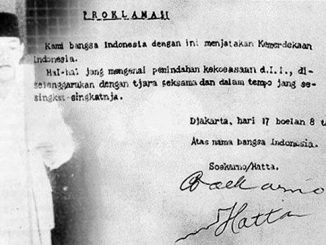 PROKLAMASI
Kami bangsa Indonesia dengan ini menjatakan Kemerdekaan
Indonesia.
Hal-hal jang mengenai pemindahan kekoeasaan d.l.l., di-
selenggarakan dengan tjara seksama dan dalam tempo jang se-
singkat-singkatnja.
Djakarta, hari 17 boelan 8 t
Atas nama bangsa Indonesia.
Soekarno/Hatta.
Soekarno
Hatta